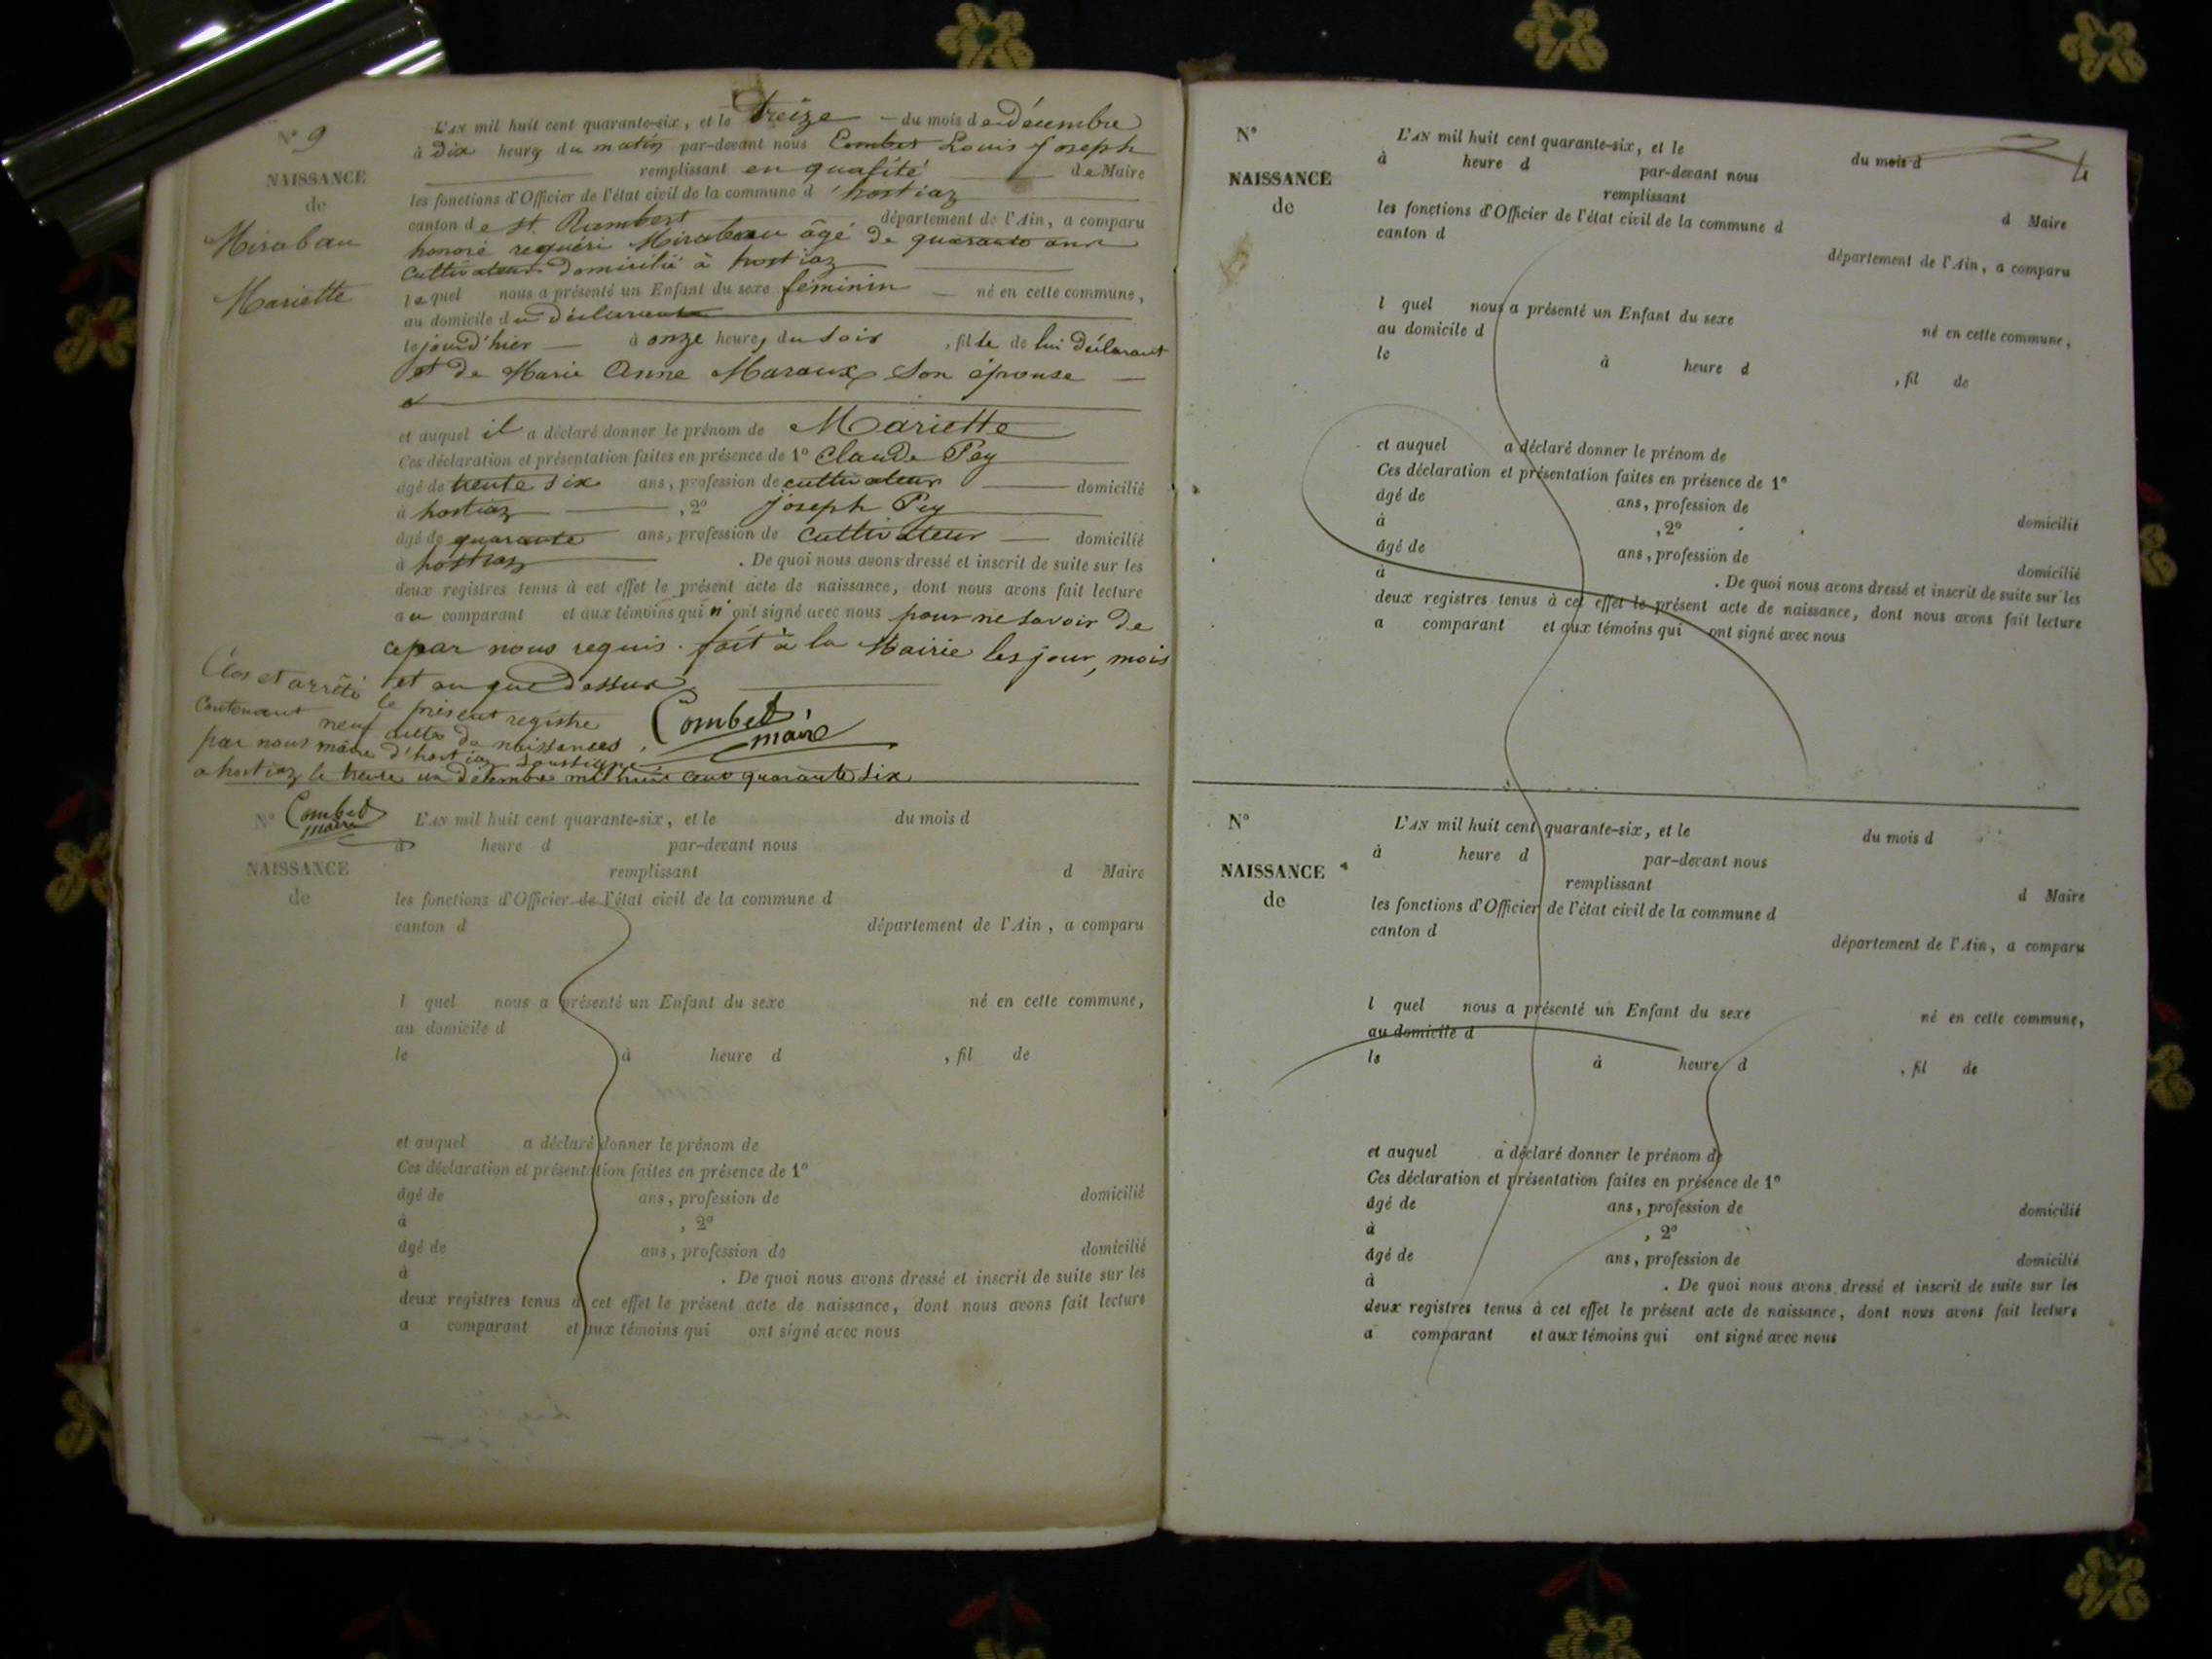 N° 9
NAISSANCE
de
Mirabau
Mariette
L'AN mil huit cent quarante-six, et le treize du mois de décembre
à Dix heures du matin par-devant nous Combet Louis Joseph
remplissant en qualité de Maire
les fonctions d'Officier de l'état civil de la commune d'hostiaz
canton de St. Rambert département de l'Ain, a comparu
honoré requéri Mirabeau âgé de quarante ans
cultivateur domicilié à hostiaz
lequel nous a présenté un Enfant du sexe féminin né en cette commune,
au domicile du déclarant
le jour d'hier à onze heures du soir, fille de lui déclarant
et de Marie Anne Maraux son épouse
et auquel il a déclaré donner le prénom de Mariette
Ces déclaration et présentation faites en présence de 1° Claude Pey
âgé de trente six ans, profession de cultivateur domicilié
à hostiaz, 2° joseph Pey
âgé de quarante ans, profession de cultivateur domicilié
à hostiaz. De quoi nous avons dressé et inscrit de suite sur les
deux registres tenus à cet effet le présent acte de naissance, dont nous avons fait lecture
au comparant et aux témoins qui n'ont signé avec nous pour ne savoir de
ce par nous requis. fait à la Mairie les jour, mois
et an que dessus
Combet, maire
Clos et arrêté le présent registre
contenant neuf actes de naissances,
par nous maire d'hostiaz soussigné
a hostiaz le trente un décembre mil huit cent quarante six
Combet
maire
N°
NAISSANCE
de
L'AN mil huit cent quarante-six, et le du mois d
à heure d par-devant nous
remplissant d Maire
les fonctions d'Officier de l'état civil de la commune d
canton d département de l'Ain, a comparu
l quel nous a présenté un Enfant du sexe né en cette commune,
au domicile d
le à heure d , fil de
et auquel a déclaré donner le prénom de
Ces déclaration et présentation faites en présence de 1°
âgé de ans, profession de domicilié
à , 2°
âgé de ans, profession de domicilié
à . De quoi nous avons dressé et inscrit de suite sur les
deux registres tenus à cet effet le présent acte de naissance, dont nous avons fait lecture
a comparant et aux témoins qui ont signé avec nous
4
N°
NAISSANCE
de
L'AN mil huit cent quarante-six, et le du mois d
à heure d par-devant nous
remplissant d Maire
les fonctions d'Officier de l'état civil de la commune d
canton d département de l'Ain, a comparu
l quel nous a présenté un Enfant du sexe né en cette commune,
au domicile d
le à heure d , fil de
et auquel a déclaré donner le prénom de
Ces déclaration et présentation faites en présence de 1°
âgé de ans, profession de domicilié
à , 2°
âgé de ans, profession de domicilié
à . De quoi nous avons dressé et inscrit de suite sur les
deux registres tenus à cet effet le présent acte de naissance, dont nous avons fait lecture
a comparant et aux témoins qui ont signé avec nous
N°
NAISSANCE
de
L'AN mil huit cent quarante-six, et le du mois d
à heure d par-devant nous
remplissant d Maire
les fonctions d'Officier de l'état civil de la commune d
canton d département de l'Ain, a comparu
l quel nous a présenté un Enfant du sexe né en cette commune,
au domicile d
le à heure d , fil de
et auquel a déclaré donner le prénom de
Ces déclaration et présentation faites en présence de 1°
âgé de ans, profession de domicilié
à , 2°
âgé de ans, profession de domicilié
à . De quoi nous avons dressé et inscrit de suite sur les
deux registres tenus à cet effet le présent acte de naissance, dont nous avons fait lecture
a comparant et aux témoins qui ont signé avec nous